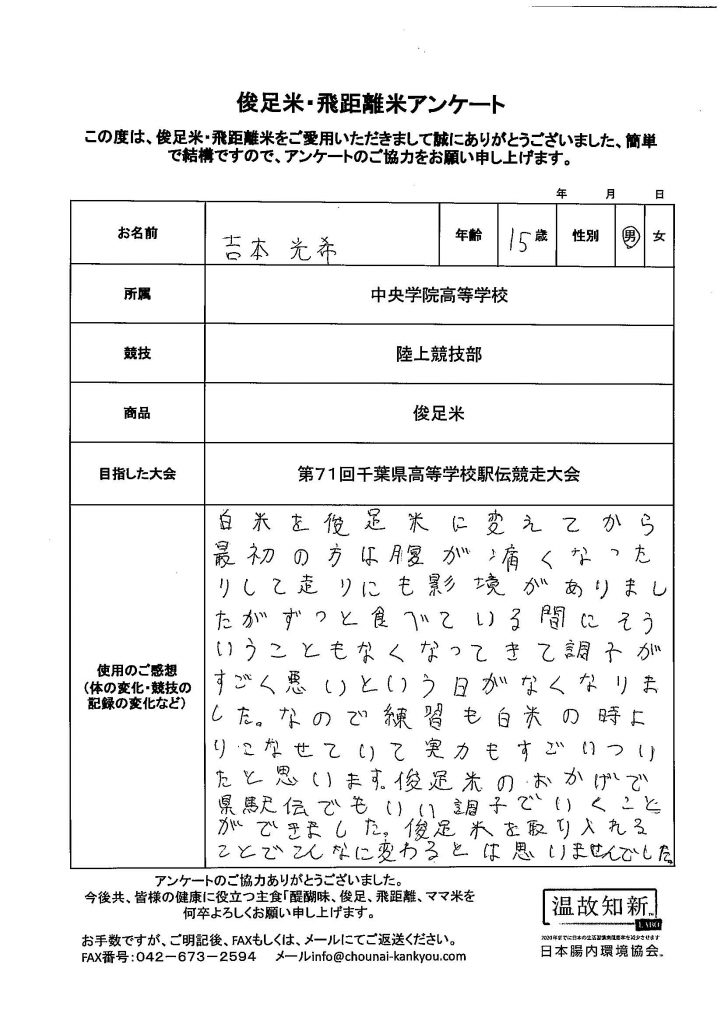 俊足米・飛距離米アンケート
この度は、俊足米・飛距離米をご愛用いただきまして誠にありがとうございました、簡単
で結構ですので、アンケートのご協力をお願い申し上げます。
年 月 日
お名前 吉本 光希 年齢 15歳 性別 男 女
所属 中央学院高等学校
競技 陸上競技部
商品 俊足米
目指した大会 第71回千葉県高等学校駅伝競走大会
使用のご感想
(体の変化・競技の
記録の変化など)
白米を俊足米に変えてから
最初の方は腹が痛くなった
りして走りにも影境がありまし
たがずっと食べている間にそう
いうこともなくなってきて調子が
すごく悪いという日がなくなりま
した。なので練習も白米の時よ
りこなせていて実力もすごいつい
たと思います。俊足米のおかげで
県駅伝でもいい調子でいくこと
ができました。俊足米を取り入れる
ことでこんなに変わるとは思いませんでした。
アンケートのご協力ありがとうございました。
今後共、皆様の健康に役立つ主食「醍醐味、俊足、飛距離、ママ米を
何卒よろしくお願い申し上げます。
お手数ですが、ご明記後、FAXもしくは、メールにてご返送ください。
FAX番号:042-673-2594 メールinfo@chounai-kankyou.com
温故知新™
LABO
2020年までに日本の生活習慣病罹患率を減少させます
日本腸内環境協会™